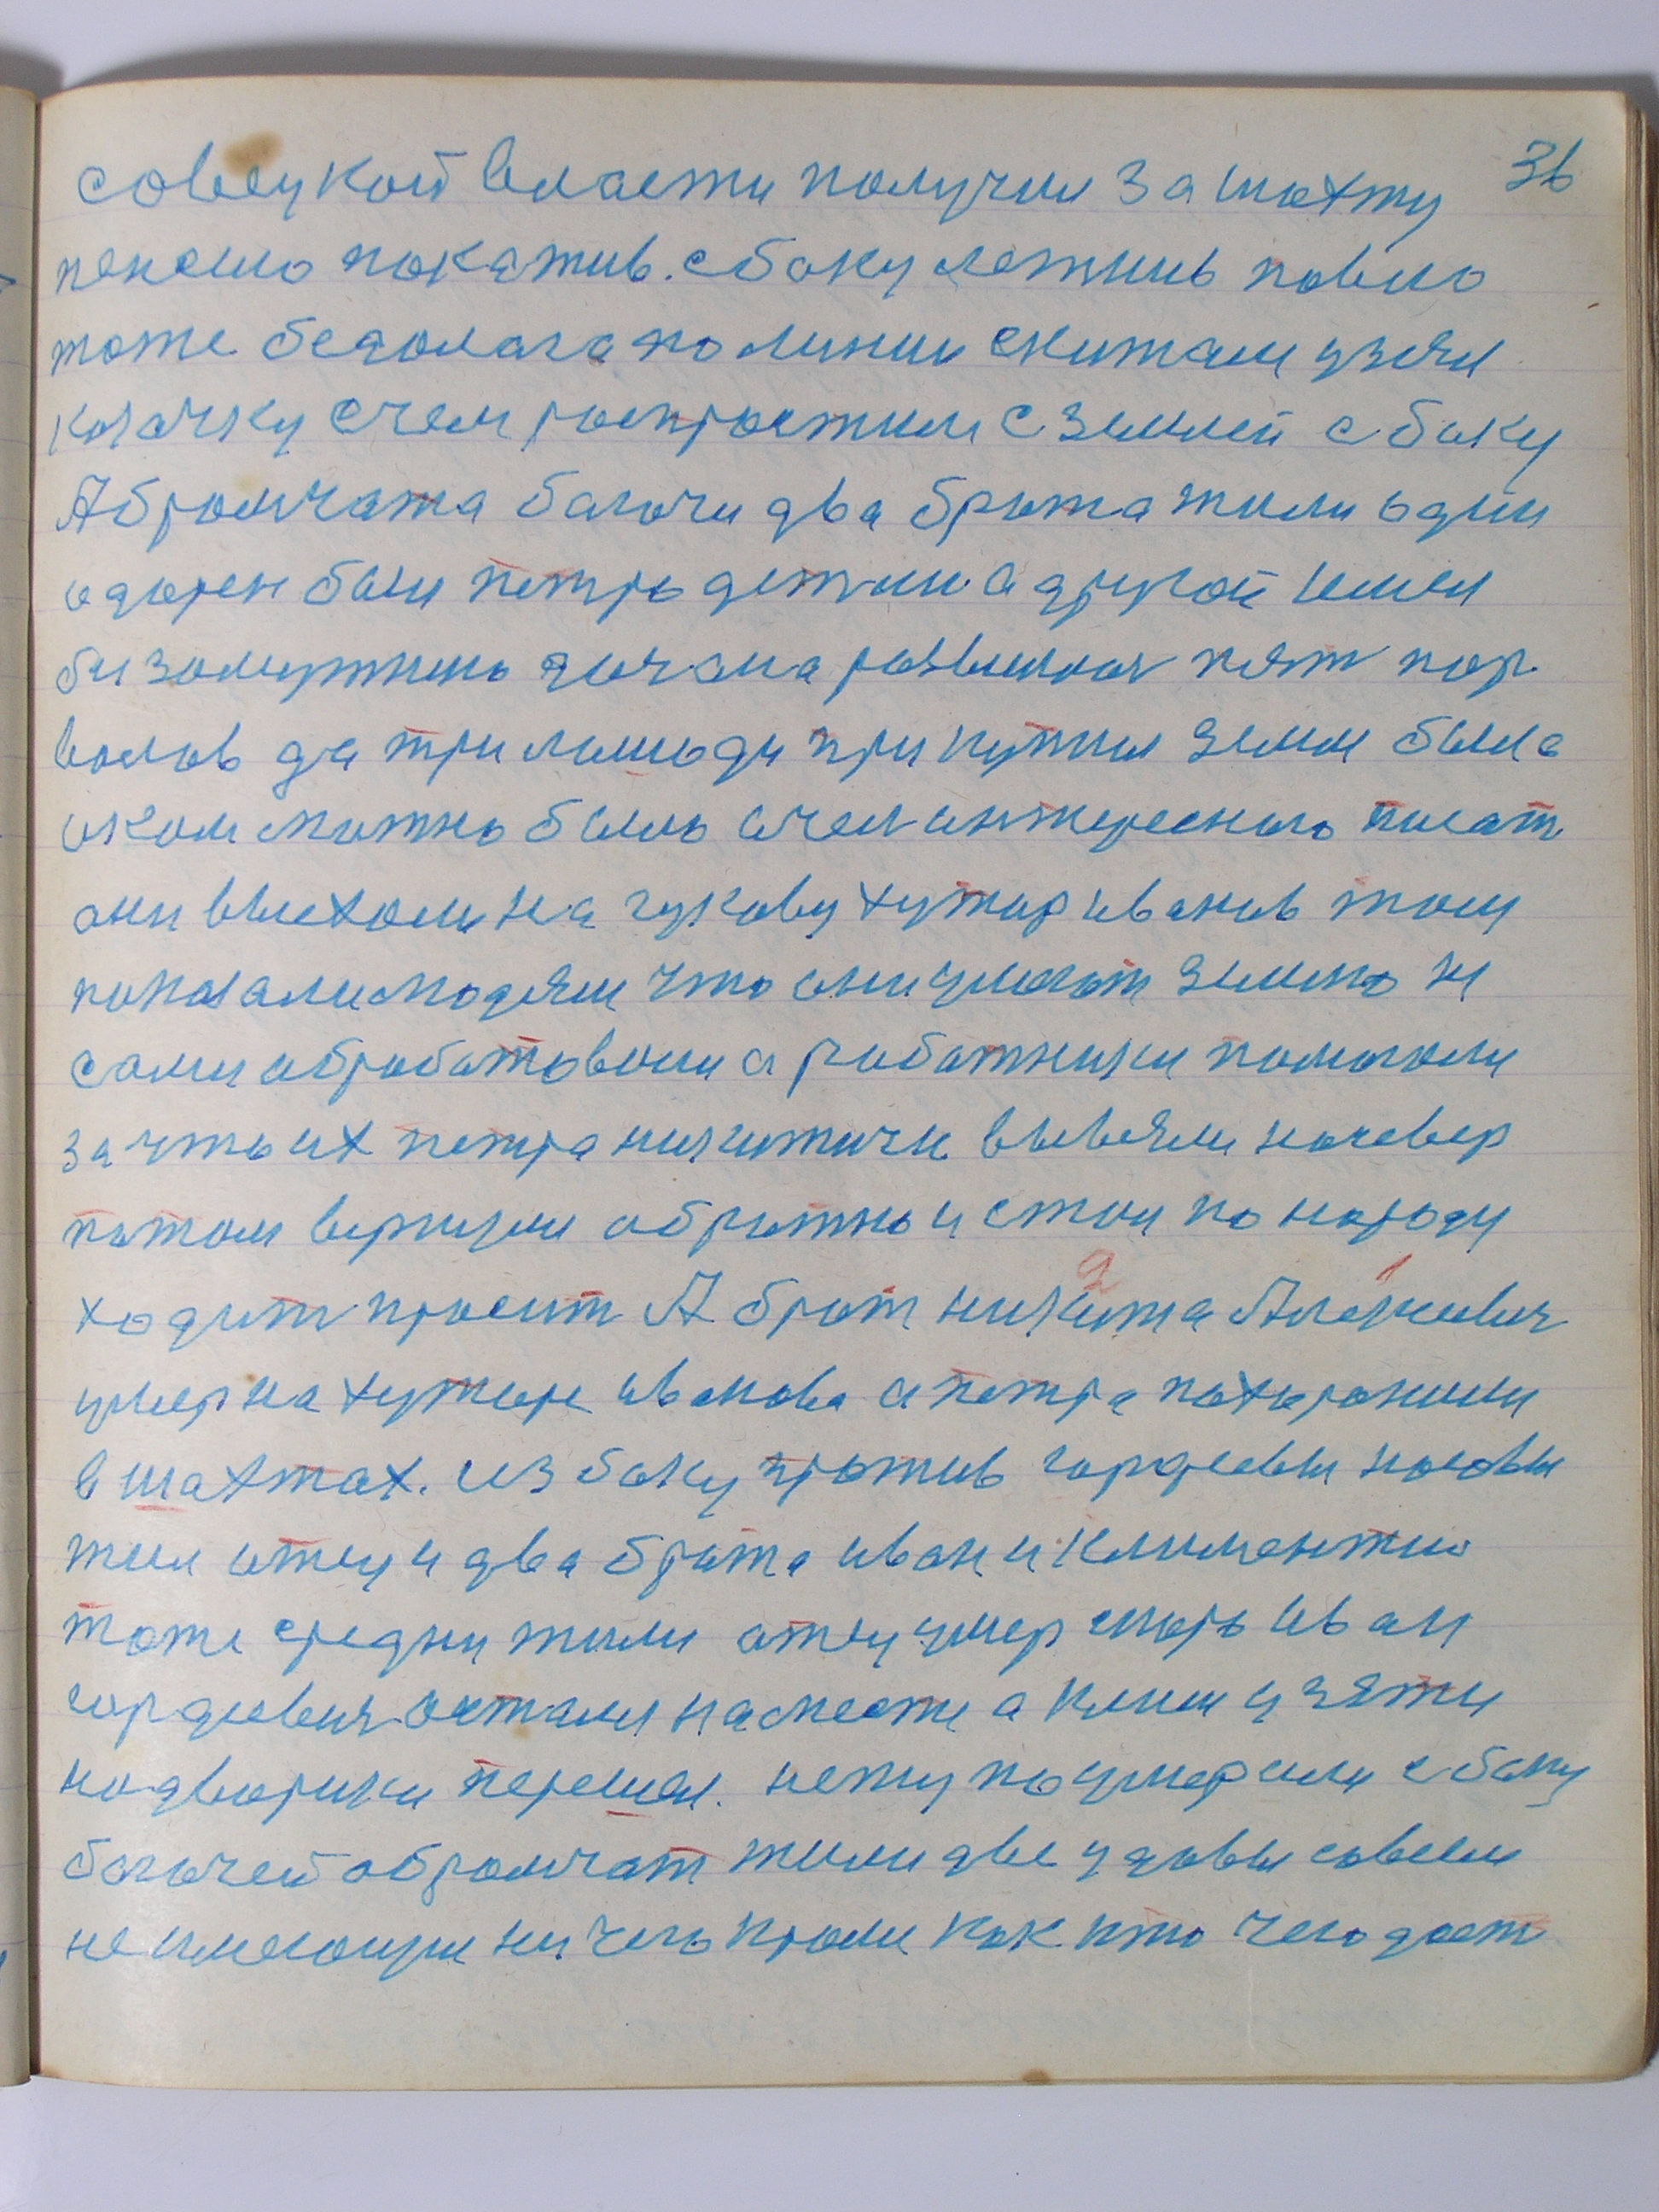 36
совецкой власти получил за шахту
пенсию покажив. с боку лежнив павло
тоже бедолага по линии скитал узял
казачку с чем роспростилс с землей с боку
Абромчата багачи два брата жили один
одорен был петро детми а другой имел
бизомужню дочь она развилная пят пар
волов да три лошади прикупки земли была
о ком можно было очем интересного писат
они выехали на гукову хутир иванив тош
показали людям что они умеют землю не
сами обробатовали а работники помогали
за что их петра никитича вывезли на север
потом вернули обратно и стал по народу
ходит просит А брат никита Алексеевич
умер на хуторе иванова а петра похоронили
в шахтах. из боку против гордеевы носовы
жил отец и два брата иван и климентию
тоже средни жили отец умер старо иван
гордеевич осталса на месте а клим у зяти
на дворики перешел. нету поумерали с боку
багачей абромчат жили две удовы совсем
не имеющи ни чего кроме как кто чего даст